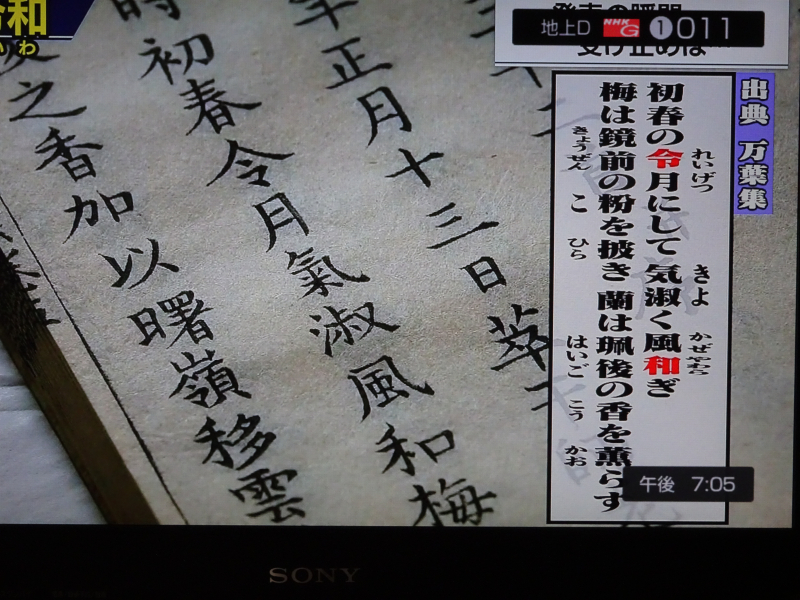 令和
いわ
地上D NHK G 1 011
発表の瞬間
受け止めは…
出典 万葉集
初春の令月にして 気淑く風和ぎ
れいげつ きよ かぜやわら
梅は鏡前の粉を披き 蘭は珮後の香を薫らす
きょうぜん こ ひら はいご こう かお
年正月十三日萃于
時初春令月氣淑風和梅
後之香加以曙嶺移雲
午後 7:05
SONY